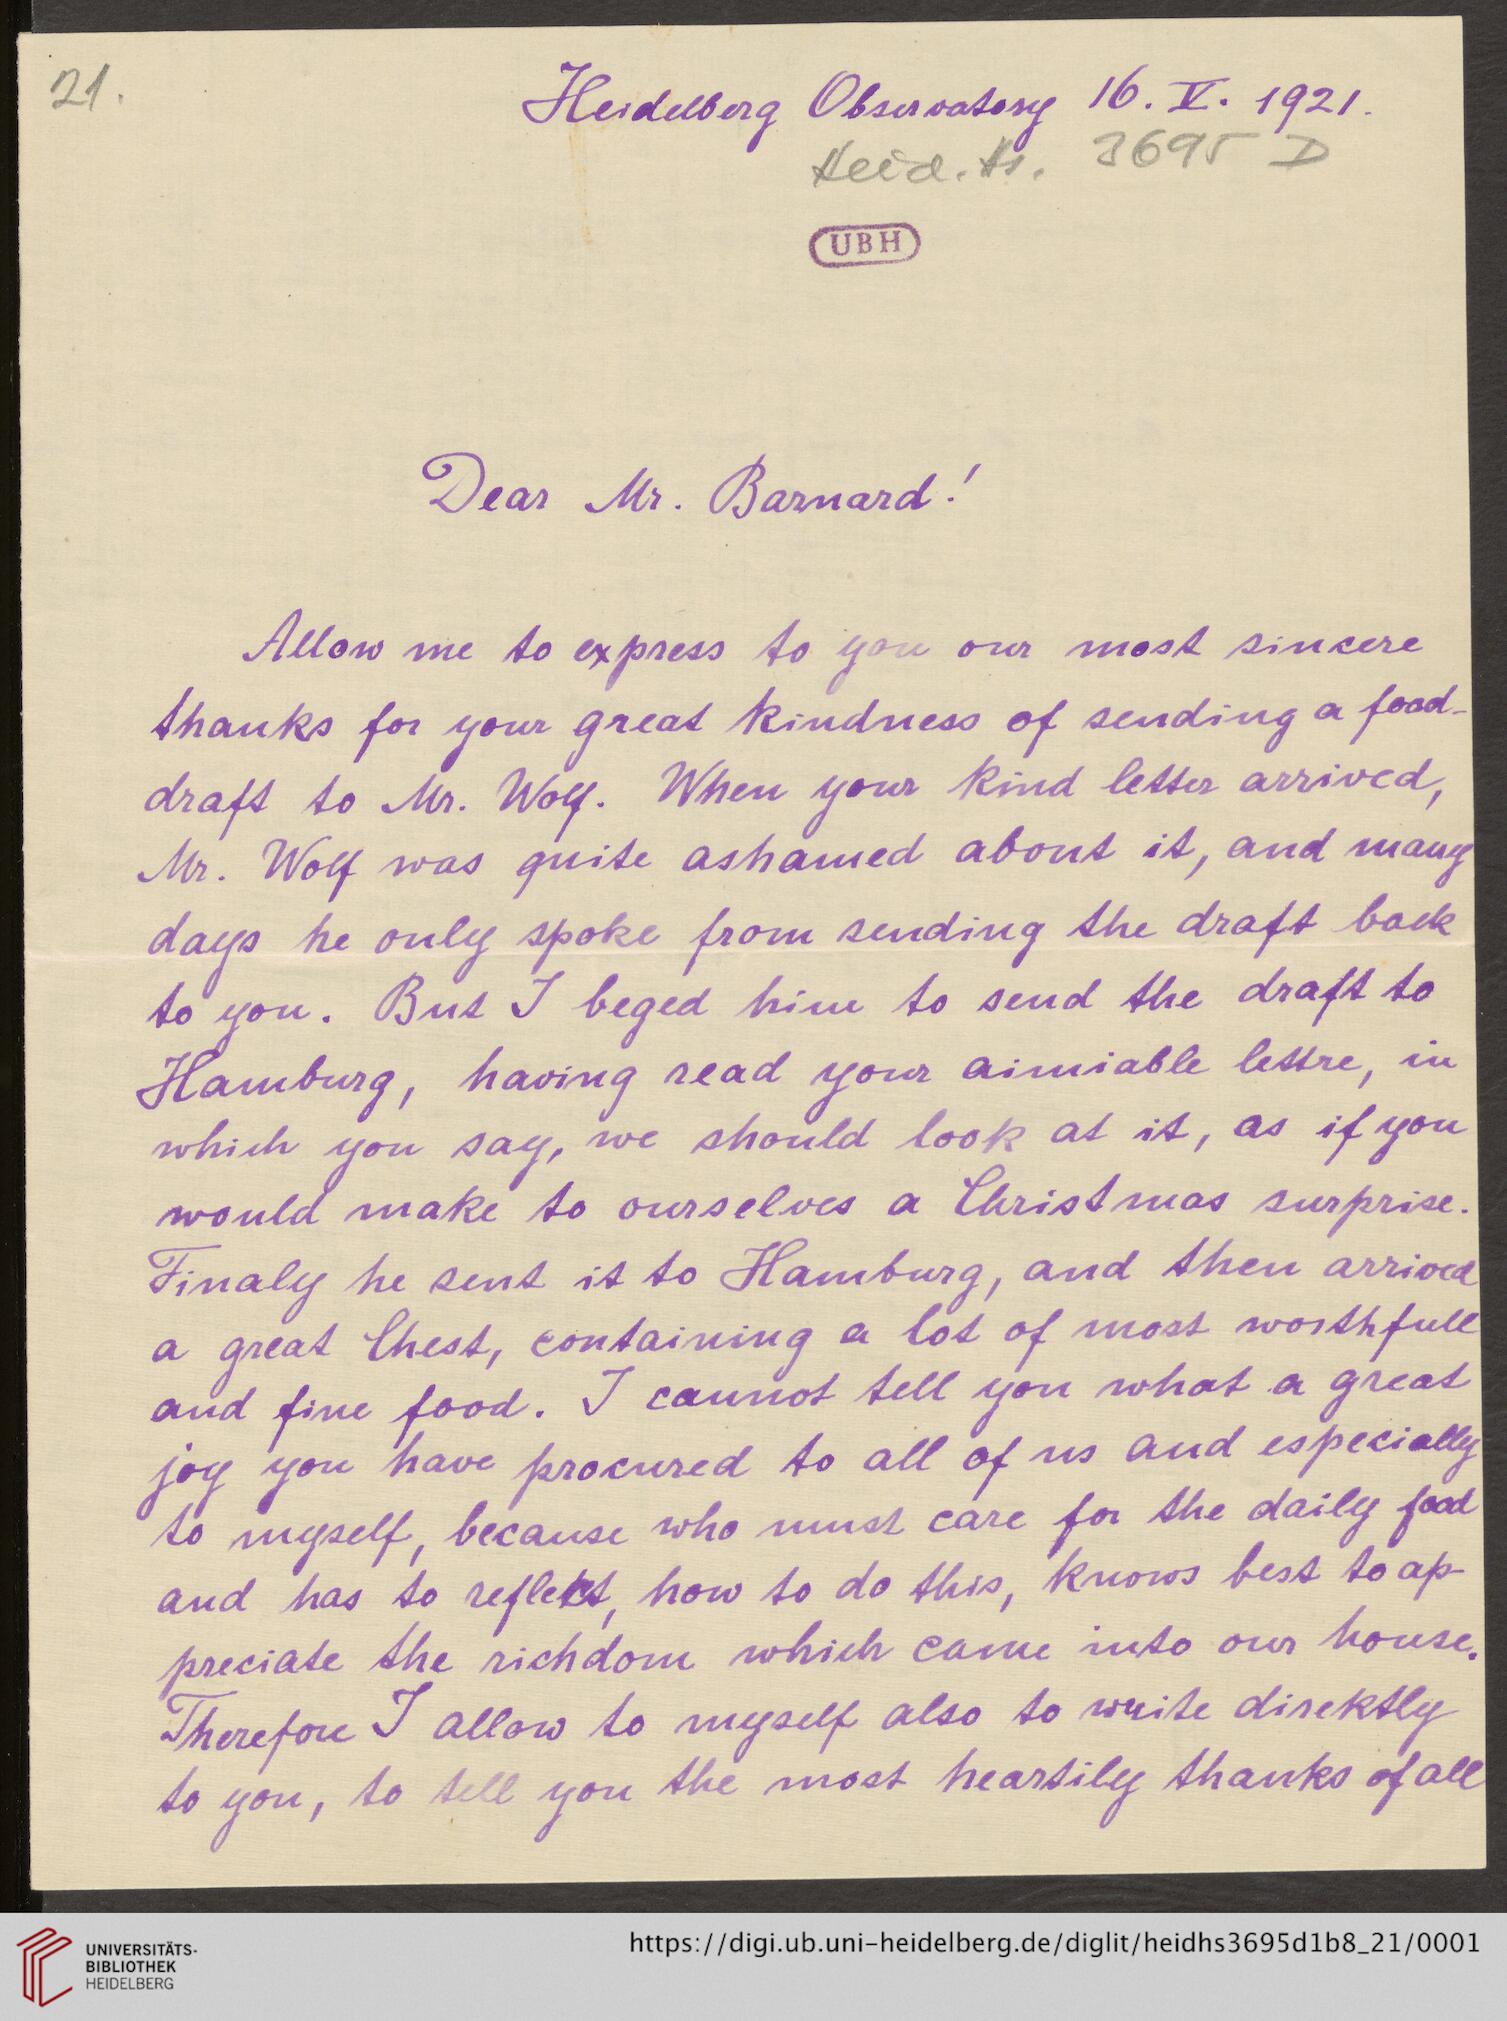 21.
Heidelberg Observatory 16. V. 1921.
Heid. Hs. 3695 D
UBH
Dear Mr. Barnard!
Allow me to express to you our most sincere
thanks for your great kindness of sending a food-
draft to Mr. Wolf. When your kind letter arrived,
Mr. Wolf was quite ashamed about it, and many
days he only spoke from sending the draft back
to you. But I beged him to send the draft to
Hamburg, having read your aimiable lettre, in
which you say, we should look at it, as if you
would make to ourselves a Christmas surprise.
Finaly he sent it to Hamburg, and then arrived
a great Chest, containing a lot of most worthfull
and fine food. I cannot tell you what a great
joy you have procured to all of us and especially
to myself, because who must care for the daily food
and has to reflect, how to do this, knows best to ap-
preciate the richdom which came into our house.
Therefore I allow to myself also to write direktly
to you, to tell you the most heartily thanks of all
UNIVERSITÄTS-
BIBLIOTHEK
HEIDELBERG
https://digi.ub.uni-heidelberg.de/diglit/heidhs3695d1b8_21/0001